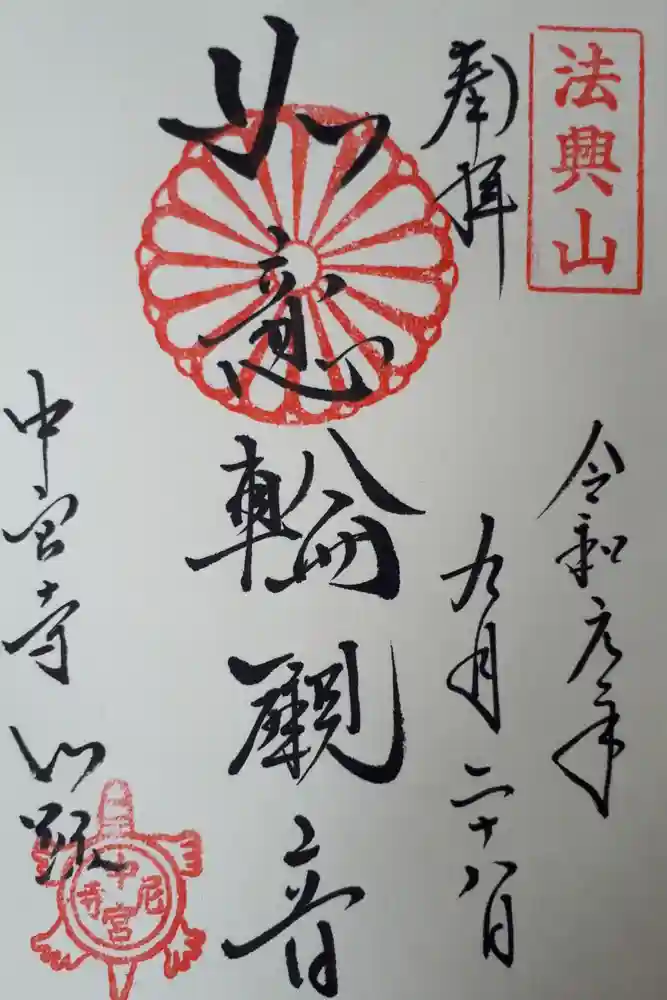 法興山
奉拝
令和元年
九月二十八日
如意輪観音
中宮寺門跡
中宮尼寺